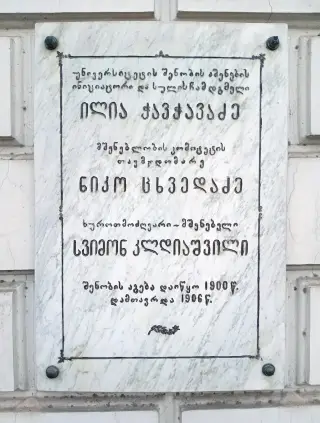 უნივერსიტეტის შენობის აშენების
ინიციატორი და სულისჩამდგმელი
ილია ჭავჭავაძე
მშენებლობის კომიტეტის
თავმჯდომარე
ნიკო ცხვედაძე
ხუროთმოძღვარი-მშენებელი
სვიმონ კლდიაშვილი
შენობის აგება დაიწყო 1900 წ.
დამთავრდა 1906 წ.